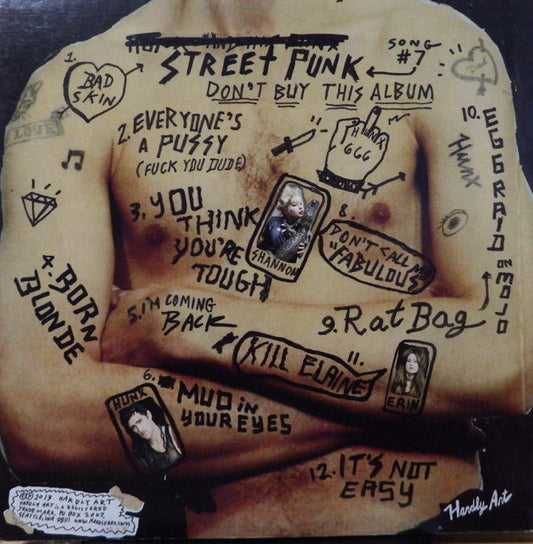 HUNX AND HIS PUNX
STREET PUNK
SONG
#7
DON'T BUY THIS ALBUM
1.
BAD
SKIN
LOVE
2. EVERYONE'S
A PUSSY
(FUCK YOU DUDE)
HUNX
666
10. EGG RAID ON MOJO
HUNX
3. YOU
THINK
YOU'RE
TOUGH
SHANNON
8.
DON'T CALL ME
"FABULOUS"
4. BORN
BLONDE
5. I'M COMING
BACK
9. Rat Bag
11.
KILL ELAINE
ERIN
6.
MUD in
YOUR EYES
HUNX
12. IT'S NOT
EASY
©℗ 2013 HARDLY ART
HARDLY ART IS A REGISTERED
TRADE MARK. PO BOX 2007,
SEATTLE, WA 98111 WWW.HARDLYART.COM
Hardly Art